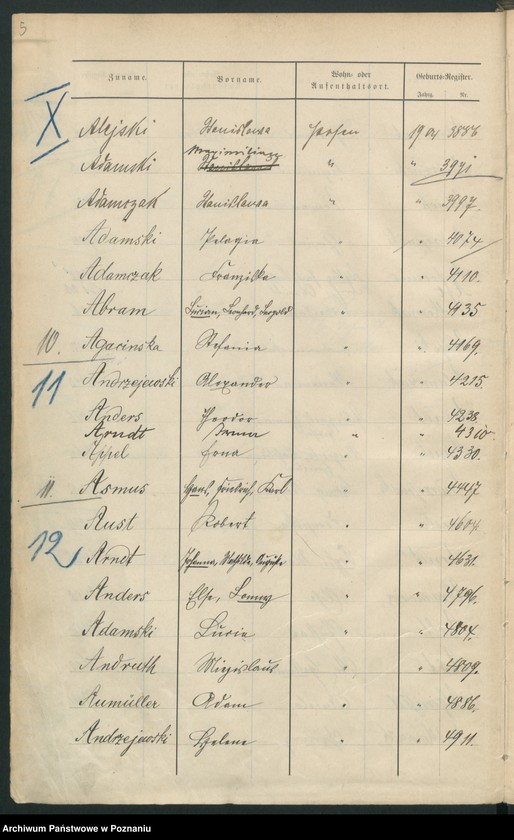 5
Zuname. Vorname. Wohn- oder Aufenthaltsort. Geburts-Register.
Jahrg. Nr.
X
Alejski Stanislawa Posen 1904 3886
Maximilian
Adamski Stanislawa " " 3971
Adamczak Stanislawa " " 3997.
Adamski Pelagia " " 4074
Adamczak Franziska " " 4110.
Abram Lucian, Leonhard, Leopold " " 4135
10. Agacinska Stefania " " 4169.
11 Andrzejewski Alexander " " 4215.
Anders Theodor " " 4238
Arndt " " 4310.
Appel Erna " " 4330.
11. Asmus Hans, Friedrich, Karl " " 4447.
Aust Robert " " 4604
12 Arndt Johanna, Mathilde, Auguste " " 4631.
Anders Else, " " 4796.
Adamski Lucie " " 4804.
Andruth Miezislaus " " 4809.
Aumüller Adam " " 4886.
Andrzejewski Helene " " 4911.
Archiwum Państwowe w Poznaniu